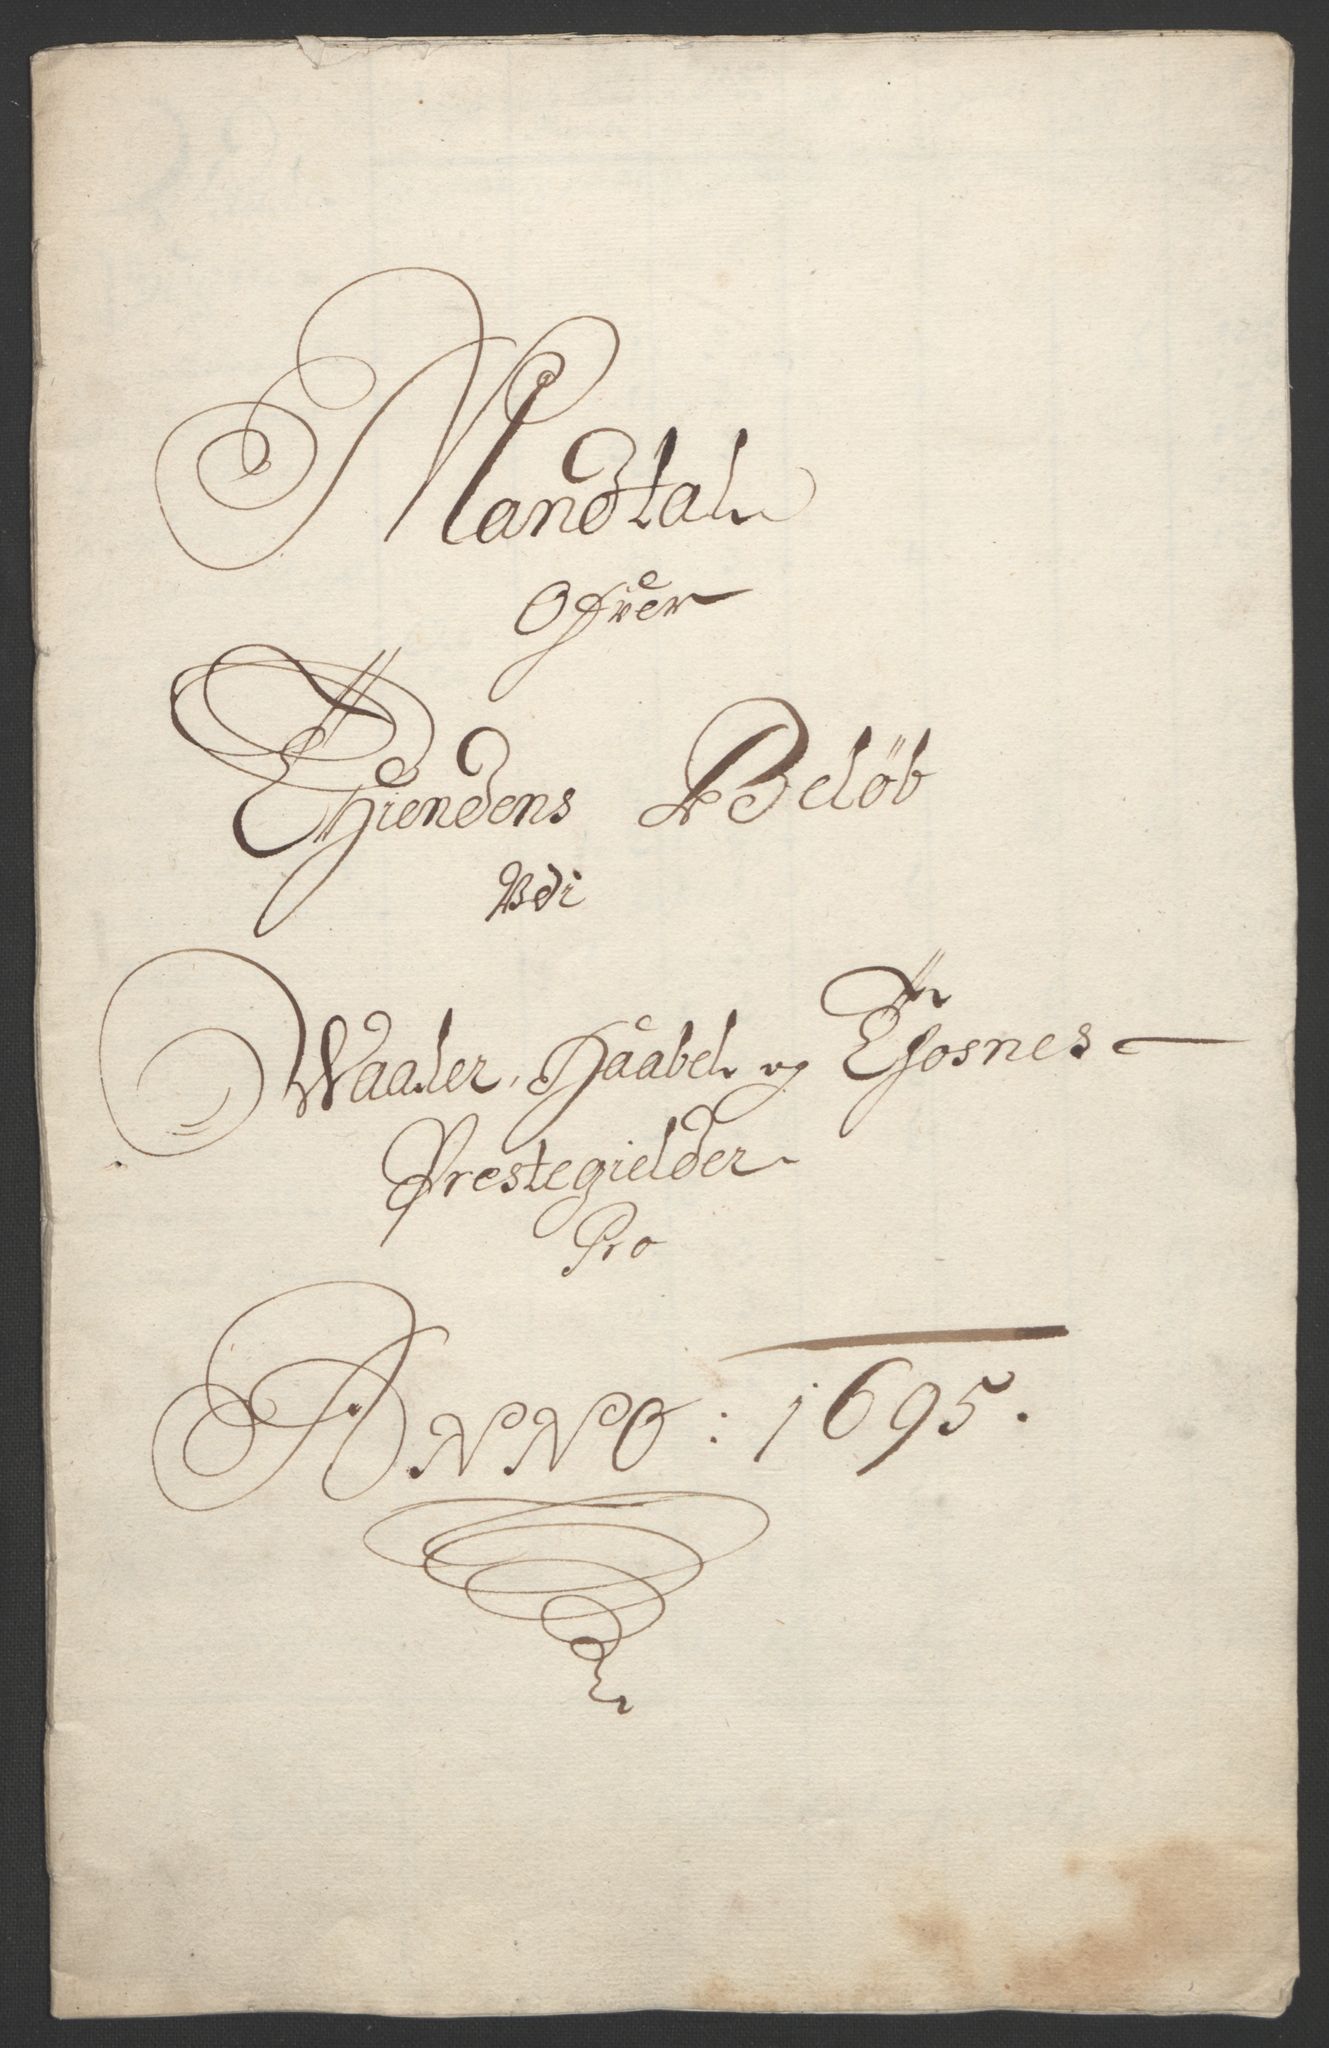 Mandtal
Ofver
Thiendens Beløb
Udi
Waaler, Haabel og Thosnes
Prestegielder
Pro
ANNO : 1695.